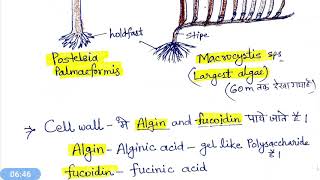 holdfast
Stipe
Postelsia
Palmaeformis
Macrocystis sps
(Largest algae)
(60m तक देखा गया है)
→ Cell wall - में Algin and fucoidin पाये जाते हैं।
Algin - Alginic acid - gel like Polysaccharide है।
fucoidin - fucinic acid
06:46